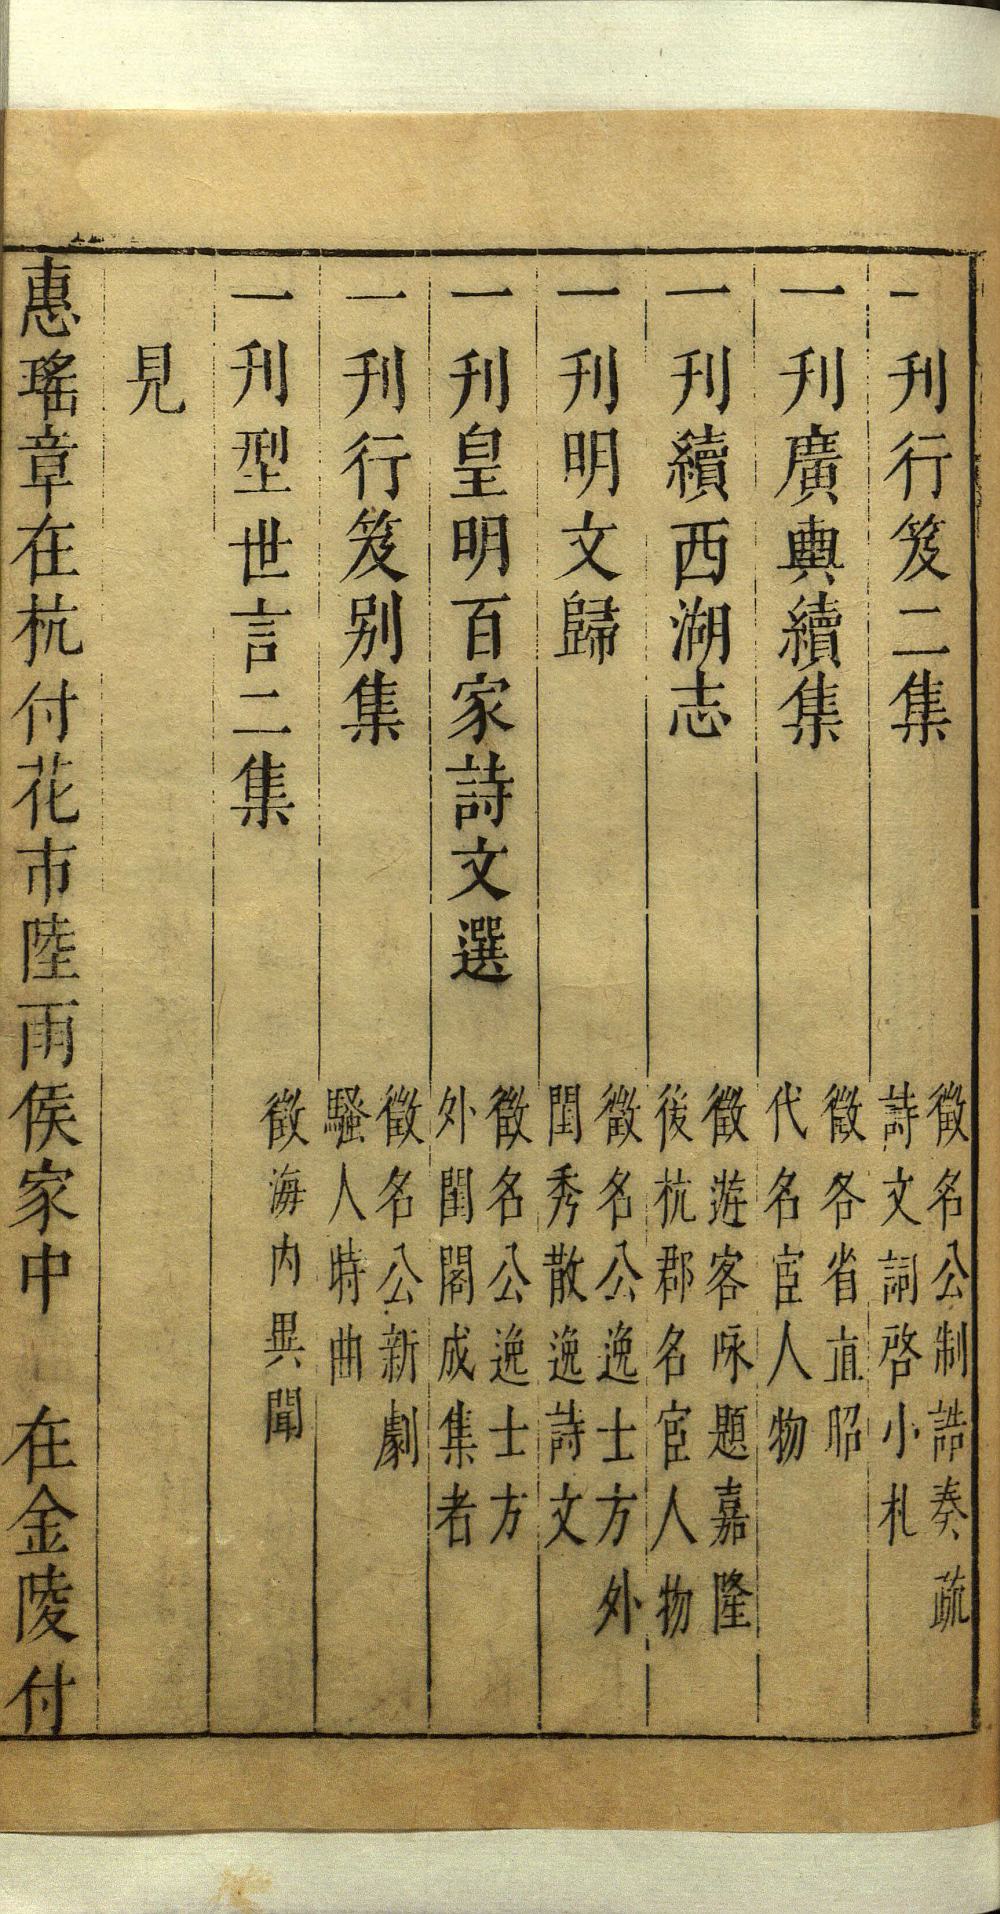 一刊行笈二集 徵名公制誥奏疏
詩文詞啓小札
一刊廣輿續集 徵各省直昭
代名宦人物
一刊續西湖志 徵遊客咏題嘉隆
後杭郡名宦人物
一刊明文歸 徵名公逸士方外
閨秀散逸詩文
一刊皇明百家詩文選 徵名公逸士方
外閨閣成集者
一刊行笈别集 徵名公新劇
騷人時曲
一刊型世言二集 徵海内異聞
見
惠瑤章在杭付花市陸雨侯家中 在金陵付